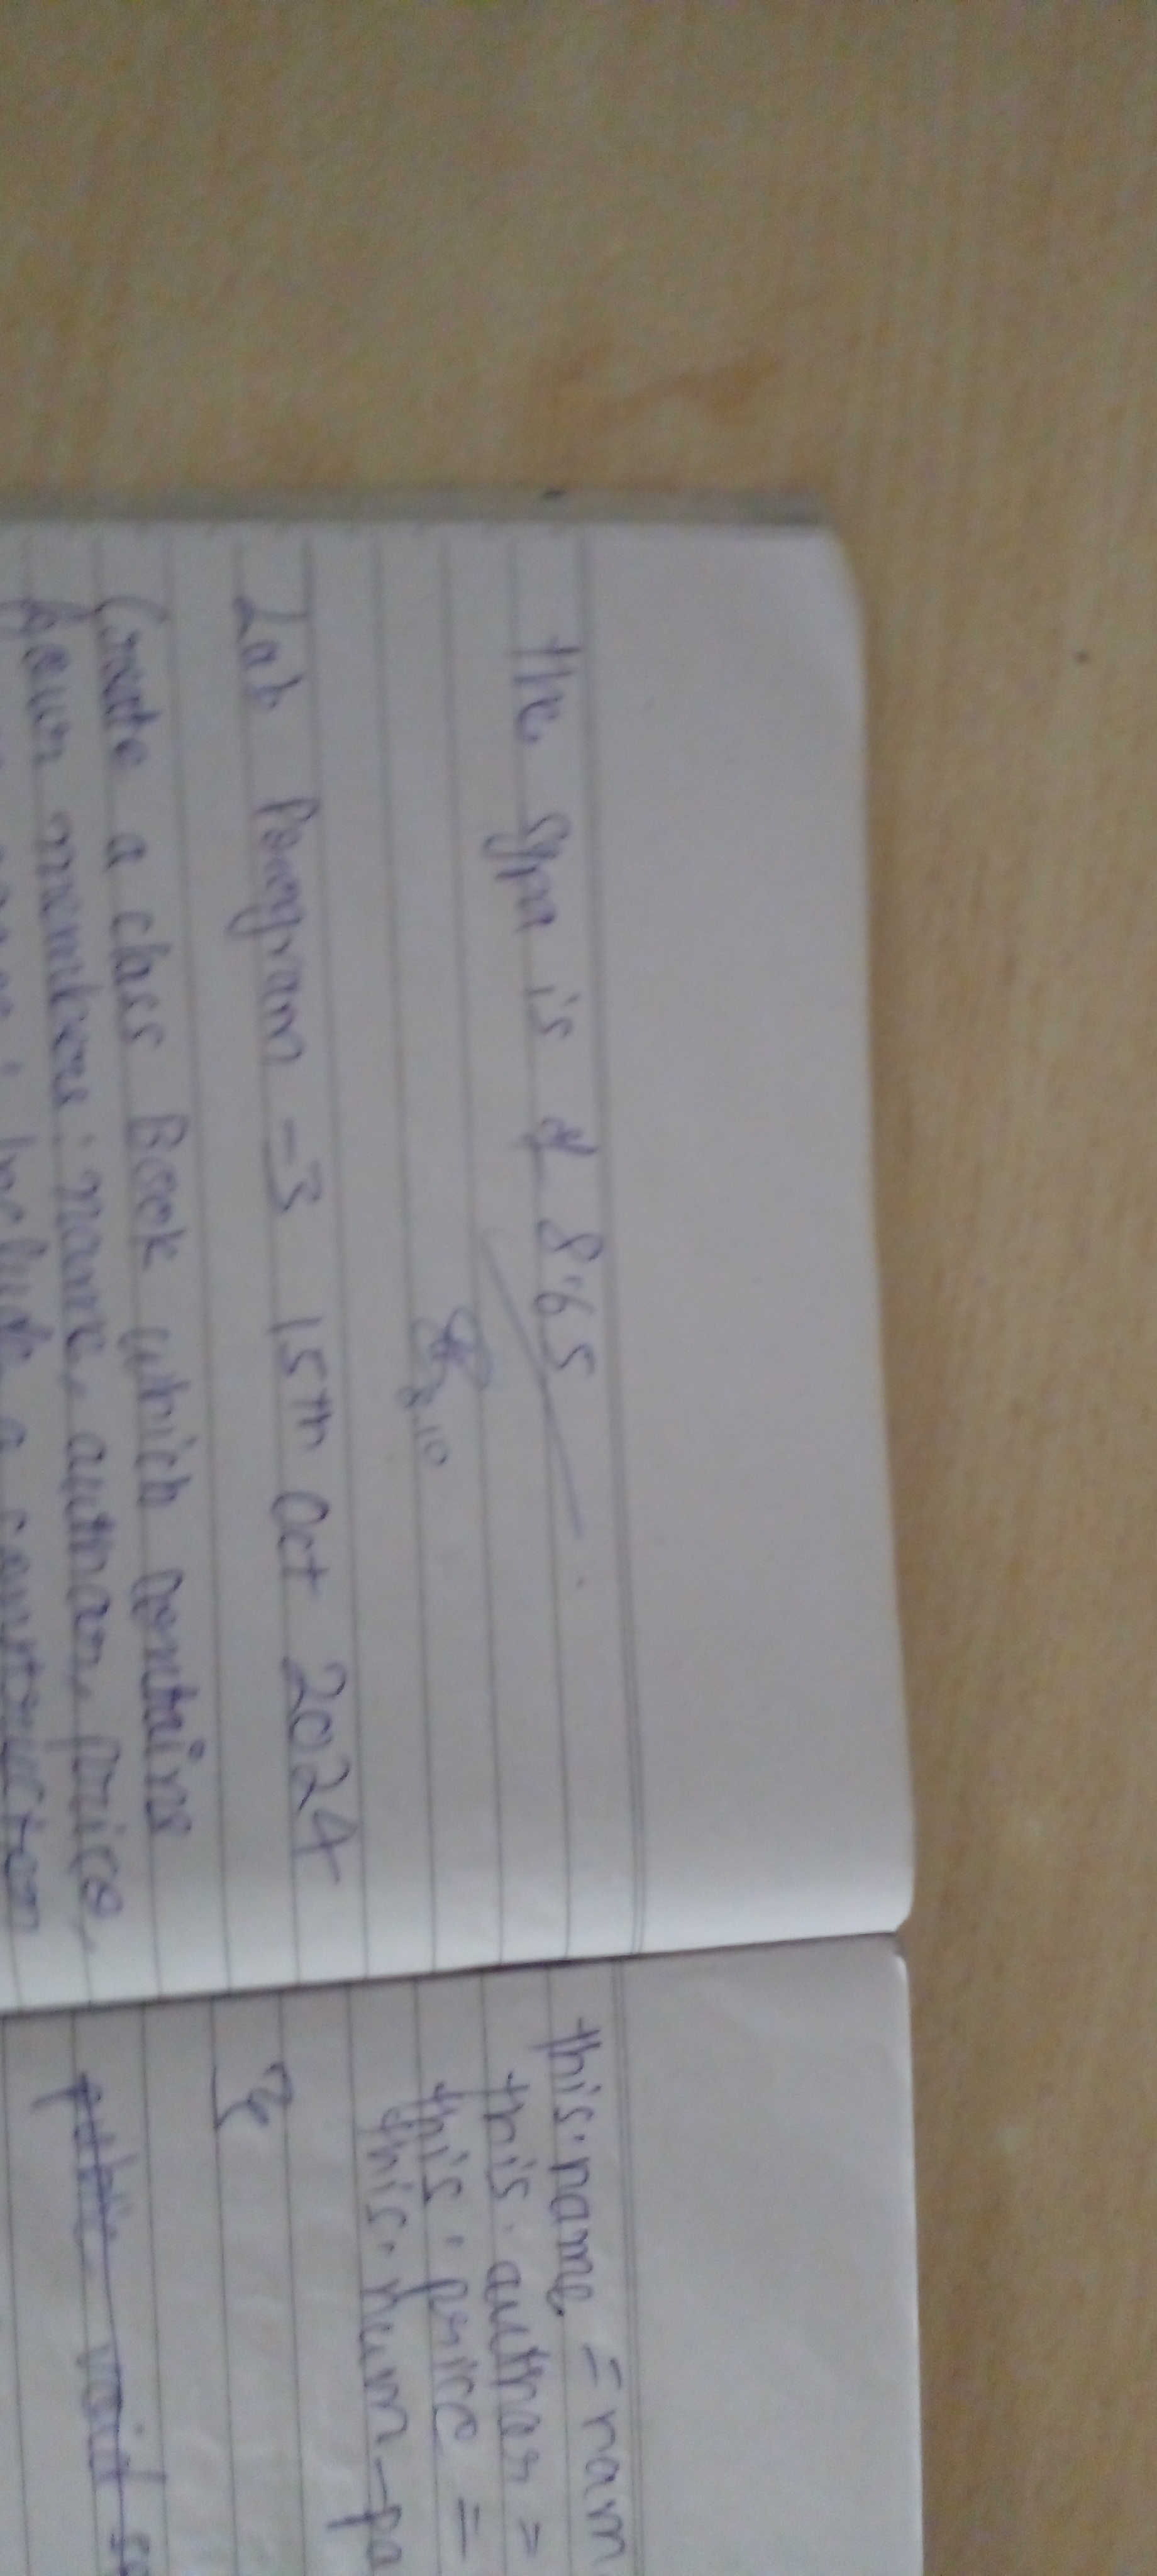 the sgpa is of 8.65
8.10
Lab Program -3 15th Oct 2024
Create a class Book which contains
four members: name, author, price,
include a constructor
this.name = nam
this.author =
this.price =
this.num-pa
}
public void se